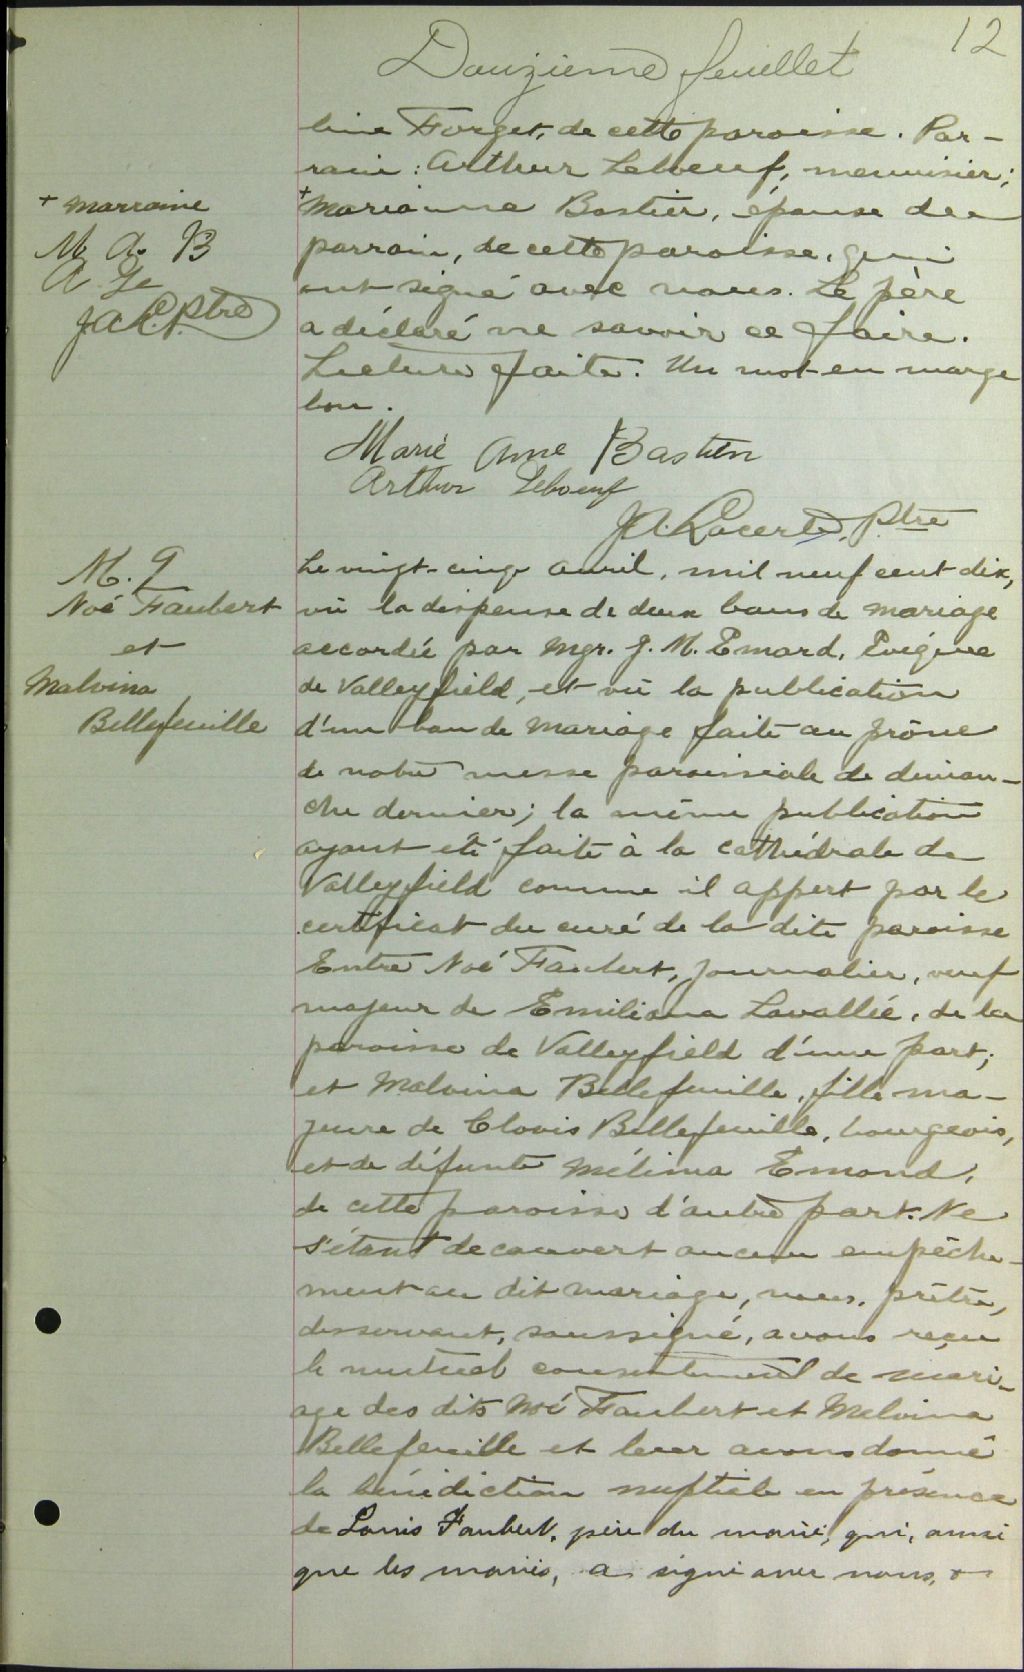 12
Douzième feuillet
line Forget, de cette paroisse. Par-
rain : Arthur Leboeuf, menuisier;
+ marraine
M. A. B
A. Le
J.A.L. Ptre
+
Marianne Bastien, épouse du
parrain, de cette paroisse, qui
ont signé avec nous. Le père
a déclaré ne savoir ce faire.
Lecture faite. Un mot en marge
bon.
Marie Anne Bastien
Arthur Leboeuf
J.A. Lacerte, Ptre
M. 9
Noé Faubert
et
Malvina
Bellefeuille
Le vingt-cinq avril, mil neuf cent dix,
vû la dispense de deux bans de mariage
accordée par Mgr. J. M. Emard, Evêque
de Valleyfield, et vû la publication
d'un ban de mariage faite au prône
de notre messe paroissiale de diman-
che dernier; la même publication
ayant été faite à la cathédrale de
Valleyfield comme il appert par le
certificat du curé de la dite paroisse
Entre Noé Faubert, journalier, veuf
majeur de Emiliana Lavallée, de la
paroisse de Valleyfield d'une part;
et Malvina Bellefeuille, fille ma-
jeure de Clovis Bellefeuille, bourgeois,
et de défunte Mélina Emond,
de cette paroisse d'autre part. Ne
s'étant découvert aucun empêche-
ment au dit mariage, nous, prêtre,
desservant, soussigné, avons reçu
le mutuel consentement de mari-
age des dits Noé Faubert et Melvina
Bellefeuille et leur avons donné
la bénédiction nuptiale en présence
de Louis Faubert, père du marié, qui, ainsi
que les mariés, a signé avec nous,